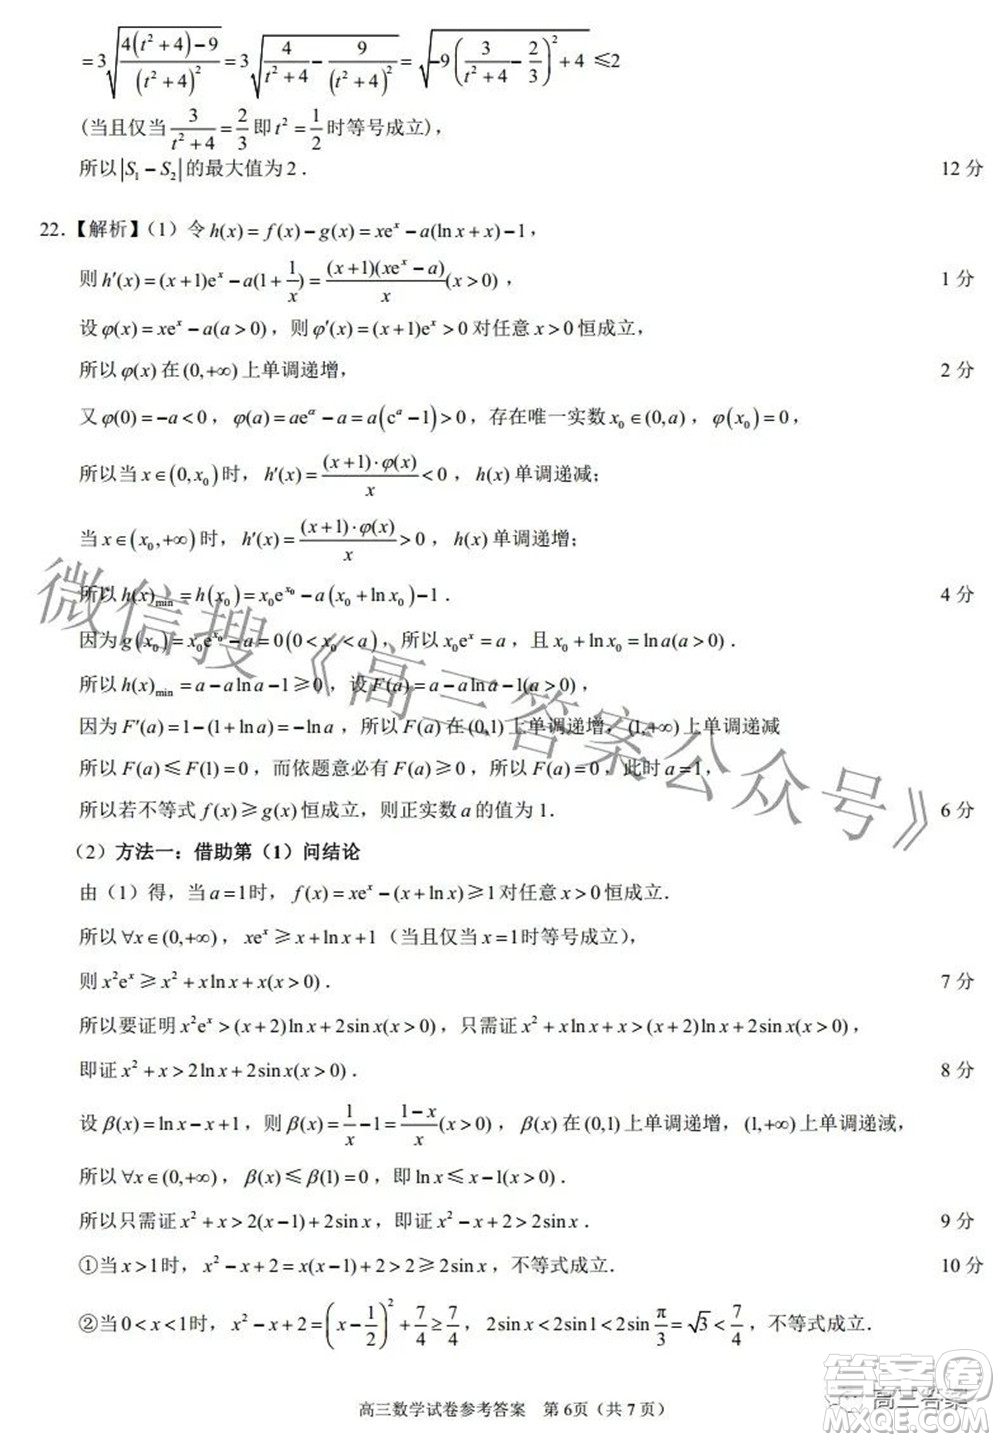 =3√(4(t²+4)−9)/(t²+4)² =3√4/(t²+4)−9/(t²+4)² =√−9(3/(t²+4)−2/3)²+4 ≤2
(当且仅当3/(t²+4)=2/3即t²=1/2时等号成立),
所以|S₁−S₂|的最大值为2. 12分
22.【解析】(1)令h(x)=f(x)−g(x)=xeˣ−a(ln x+x)−1,
则h′(x)=(x+1)eˣ−a(1+1/x)=(x+1)(xeˣ−a)/x(x>0), 1分
设φ(x)=xeˣ−a(a>0),则φ′(x)=(x+1)eˣ>0对任意x>0恒成立,
所以φ(x)在(0,+∞)上单调递增, 2分
又φ(0)=−a<0,φ(a)=aeᵃ−a=a(eᵃ−1)>0,存在唯一实数x₀∈(0,a),φ(x₀)=0,
所以当x∈(0,x₀)时,h′(x)=(x+1)·φ(x)/x<0,h(x)单调递减;
当x∈(x₀,+∞)时,h′(x)=(x+1)·φ(x)/x>0,h(x)单调递增;
所以h(x)min=h(x₀)=x₀e^x₀−a(x₀+ln x₀)−1. 4分
因为g(x₀)=x₀e^x₀−a=0(0<x₀<a),所以x₀eˣ=a,且x₀+ln x₀=ln a(a>0).
所以h(x)min=a−aln a−1≥0,设F(a)=a−aln a−1(a>0),
因为F′(a)=1−(1+ln a)=−ln a,所以F(a)在(0,1)上单调递增,(1,+∞)上单调递减
所以F(a)≤F(1)=0,而依题意必有F(a)≥0,所以F(a)=0,此时a=1,
所以若不等式f(x)≥g(x)恒成立,则正实数a的值为1. 6分
(2)方法一:借助第(1)问结论
由(1)得,当a=1时,f(x)=xeˣ−(x+ln x)≥1对任意x>0恒成立.
所以∀x∈(0,+∞),xeˣ≥x+ln x+1(当且仅当x=1时等号成立),
则x²eˣ≥x²+xln x+x(x>0). 7分
所以要证明x²eˣ>(x+2)ln x+2sin x(x>0),只需证x²+xln x+x>(x+2)ln x+2sin x(x>0),
即证x²+x>2ln x+2sin x(x>0). 8分
设β(x)=ln x−x+1,则β(x)=1/x−1=(1−x)/x(x>0),β(x)在(0,1)上单调递增,(1,+∞)上单调递减,
所以∀x∈(0,+∞),β(x)≤β(1)=0,即ln x≤x−1(x>0).
所以只需证x²+x>2(x−1)+2sin x,即证x²−x+2>2sin x. 9分
①当x>1时,x²−x+2=x(x−1)+2>2≥2sin x,不等式成立. 10分
②当0<x<1时,x²−x+2=(x−1/2)²+7/4≥7/4,2sin x<2sin1<2sin π/3=√3<7/4,不等式成立.
微信搜《高三答案公众号》
高三数学试卷参考答案 第6页(共7页)
答案圈
高三答案
MXQE.COM